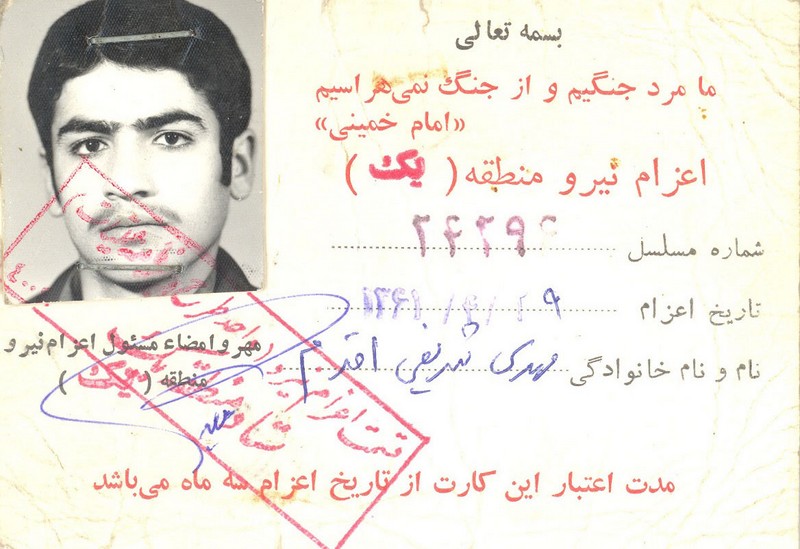 بسمه تعالی
ما مرد جنگیم و از جنگ نمی‌هراسیم
«امام خمینی»
اعزام نیرو منطقه ( یک )
شماره مسلسل
تاریخ اعزام ۱۳۶۱/۴/۲۹
نام و نام خانوادگی مهدی شریفی اقدم
مهر و امضاء مسئول اعزام نیرو
منطقه ( یک )
مدت اعتبار این کارت از تاریخ اعزام سه ماه می‌باشد